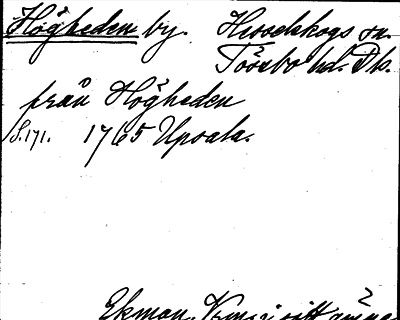 Högheden by. Hesselskogs sn.
Tössbo hd. Ds.
från Högheden
S. 171. 1765 Upsala.
Ekman, Värml i sitt ämne